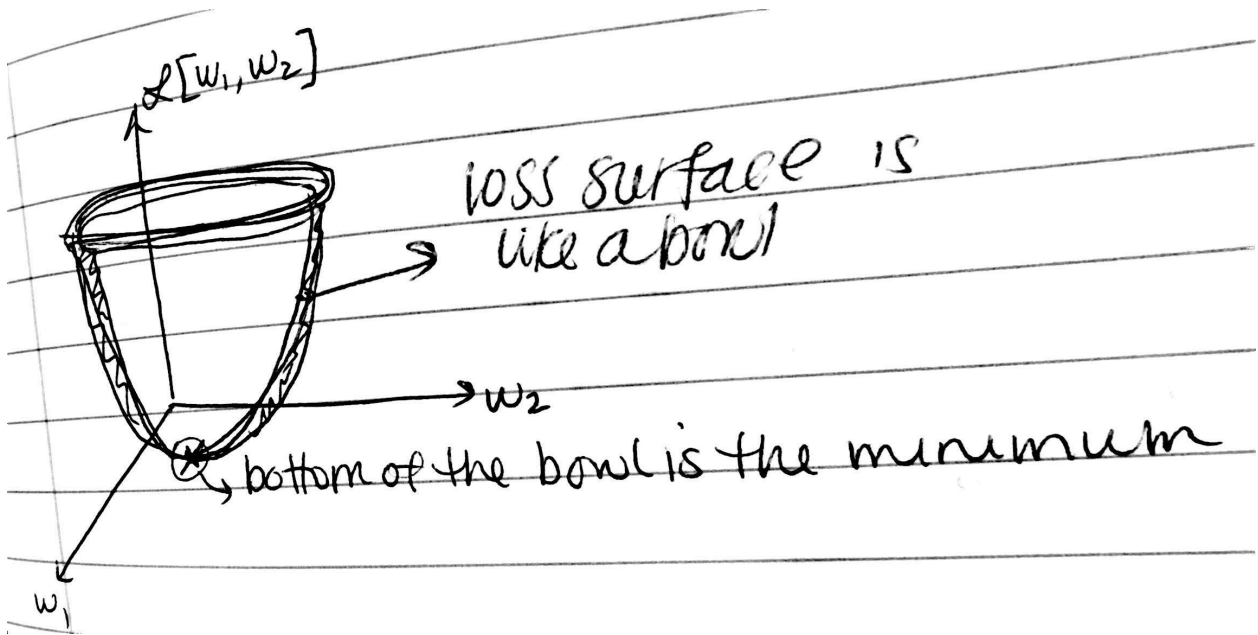 ℒ[w₁, w₂]
loss surface is
like a bowl
w₂
bottom of the bowl is the minimum
w₁